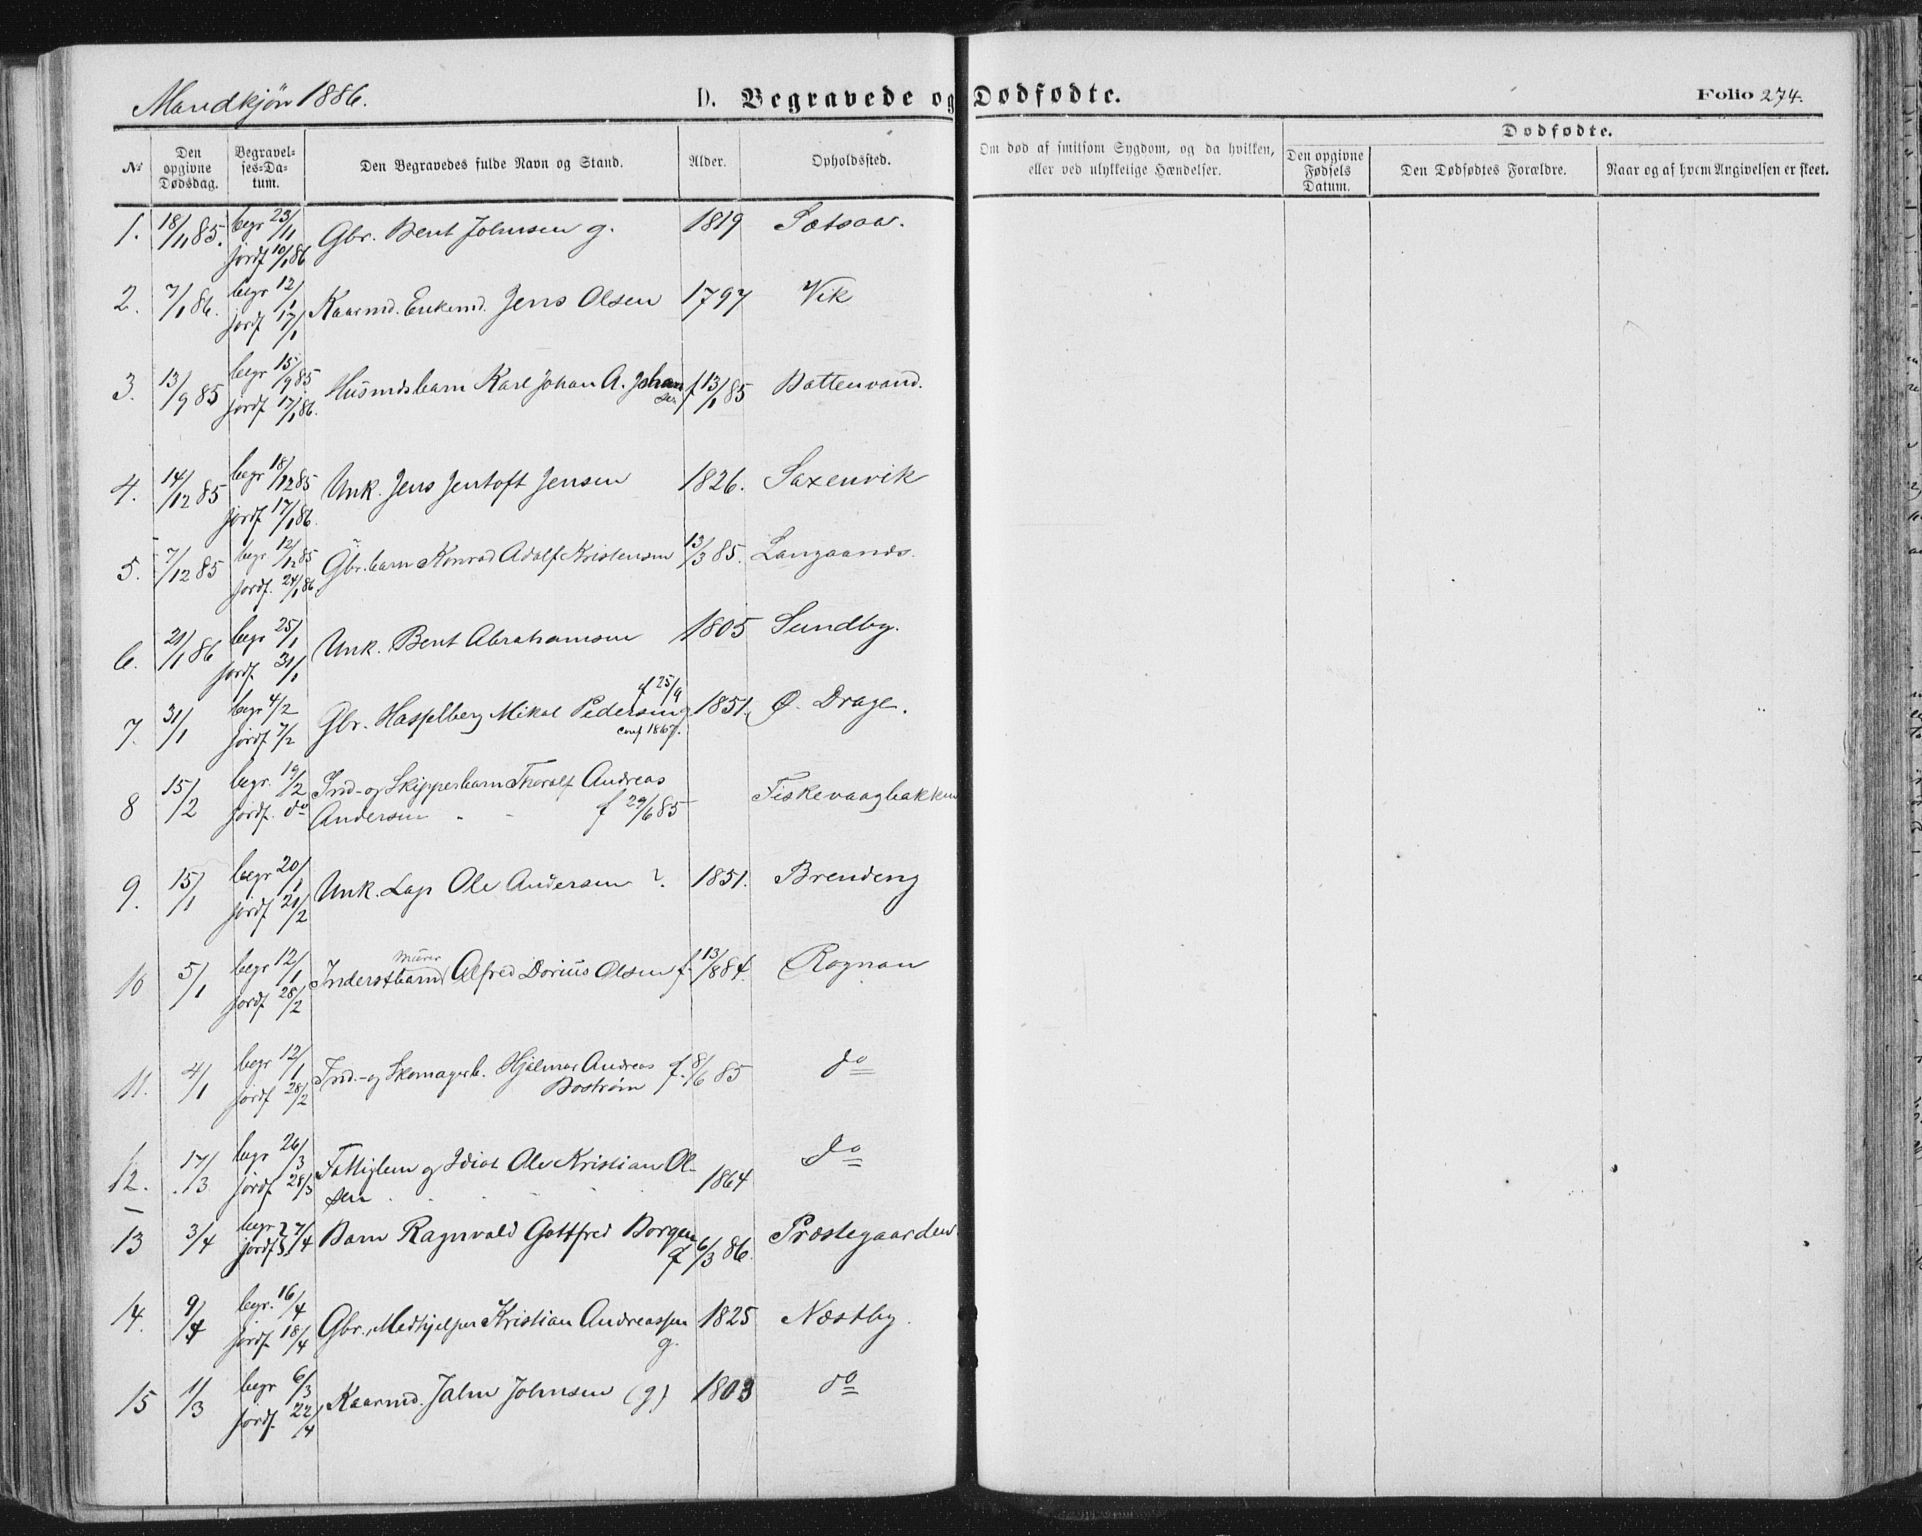 Mandkjøn 1886.
D. Begravede og Dødfødte.
Folio 274.
№
Den opgivne Dødsdag.
Begravelses-Datum.
Den Begravedes fulde Navn og Stand.
Alder.
Opholdssted.
Om død af smitsom Sygdom, og da hvilken, eller ved ulykkelige Hændelser.
Dødfødte.
Den opgivne Fødsels Datum.
Den Dødfødtes Forældre.
Naar og af hvem Angivelsen er skeet.
1. 18/11 85. begr 23/11 Gbr. Bent Johnsen g. 1819 Sætsaa.
jordf 10/1 86
2. 7/1 86. begr 12/1 Kaarmd. Enkemd. Jens Olsen 1797 Vik
jordf 17/1
3. 13/9 85 begr 15/9 85 Husmdsbarn Karl Johan A. Johansen f 13/1 85 Bottenvand.
jordf 17/1 86.
4. 14/12 85 begr 18/12 85 Unk. Jens Jentoft Jensen 1826. Saxenvik
jordf 17/1 86.
5. 7/12 85 begr 12/12 85 Gbr. barn Konrad Adolf Kristensen 13/3 85. Langaanæs.
jordf. 24/1 86
6. 21/1 86 begr 25/1 Unk. Bent Abrahamsen 1805 Sundby.
jordf 31/1
f 25/9
7. 31/1 begr 4/2 Gbr. Hasselberg Mikal Pedersen g 1851. Ø. Drage.
jordf 7/2 conf 1867.
8 15/2 begr. 19/2 Ind- og Skippersbarn Thoralf Andreas Fiskevaagbakken
jordf. do Andersen f 29/6 85
9. 15/1 begr 20/1 Unk. Lap Ole Andersen ?. 1851. Brendeng
jordf 21/2
Murer
10 5/1 begr 12/1 Inderstbarn Alfred Dorius Olsen f. 13/8 84. Rognan
jordf 28/2
11. 4/1 begr 12/1 Ind.- og Skomagerb. Hjalmar Andreas f. 8/6 85 do
jordf 28/2 Boström
12. 17/3 begr 26/3 Fattiglem og Idiot Ole Kristian Ol- 1864 do
jordf 28/3 sen
13 3/4 begr 7/4 Barn Ragnvald Gottfred Borgen Præstegaarden
jordf f 6/3 86.
14. 9/4 begr. 16/4 Gbr. Medhjelper Kristian Andreassen 1825 Næstby.
jordf 18/4 g.
15 1/3 begr 6/3 Kaarmd. John Johnsen (g) 1803 do
jordf. 22/4